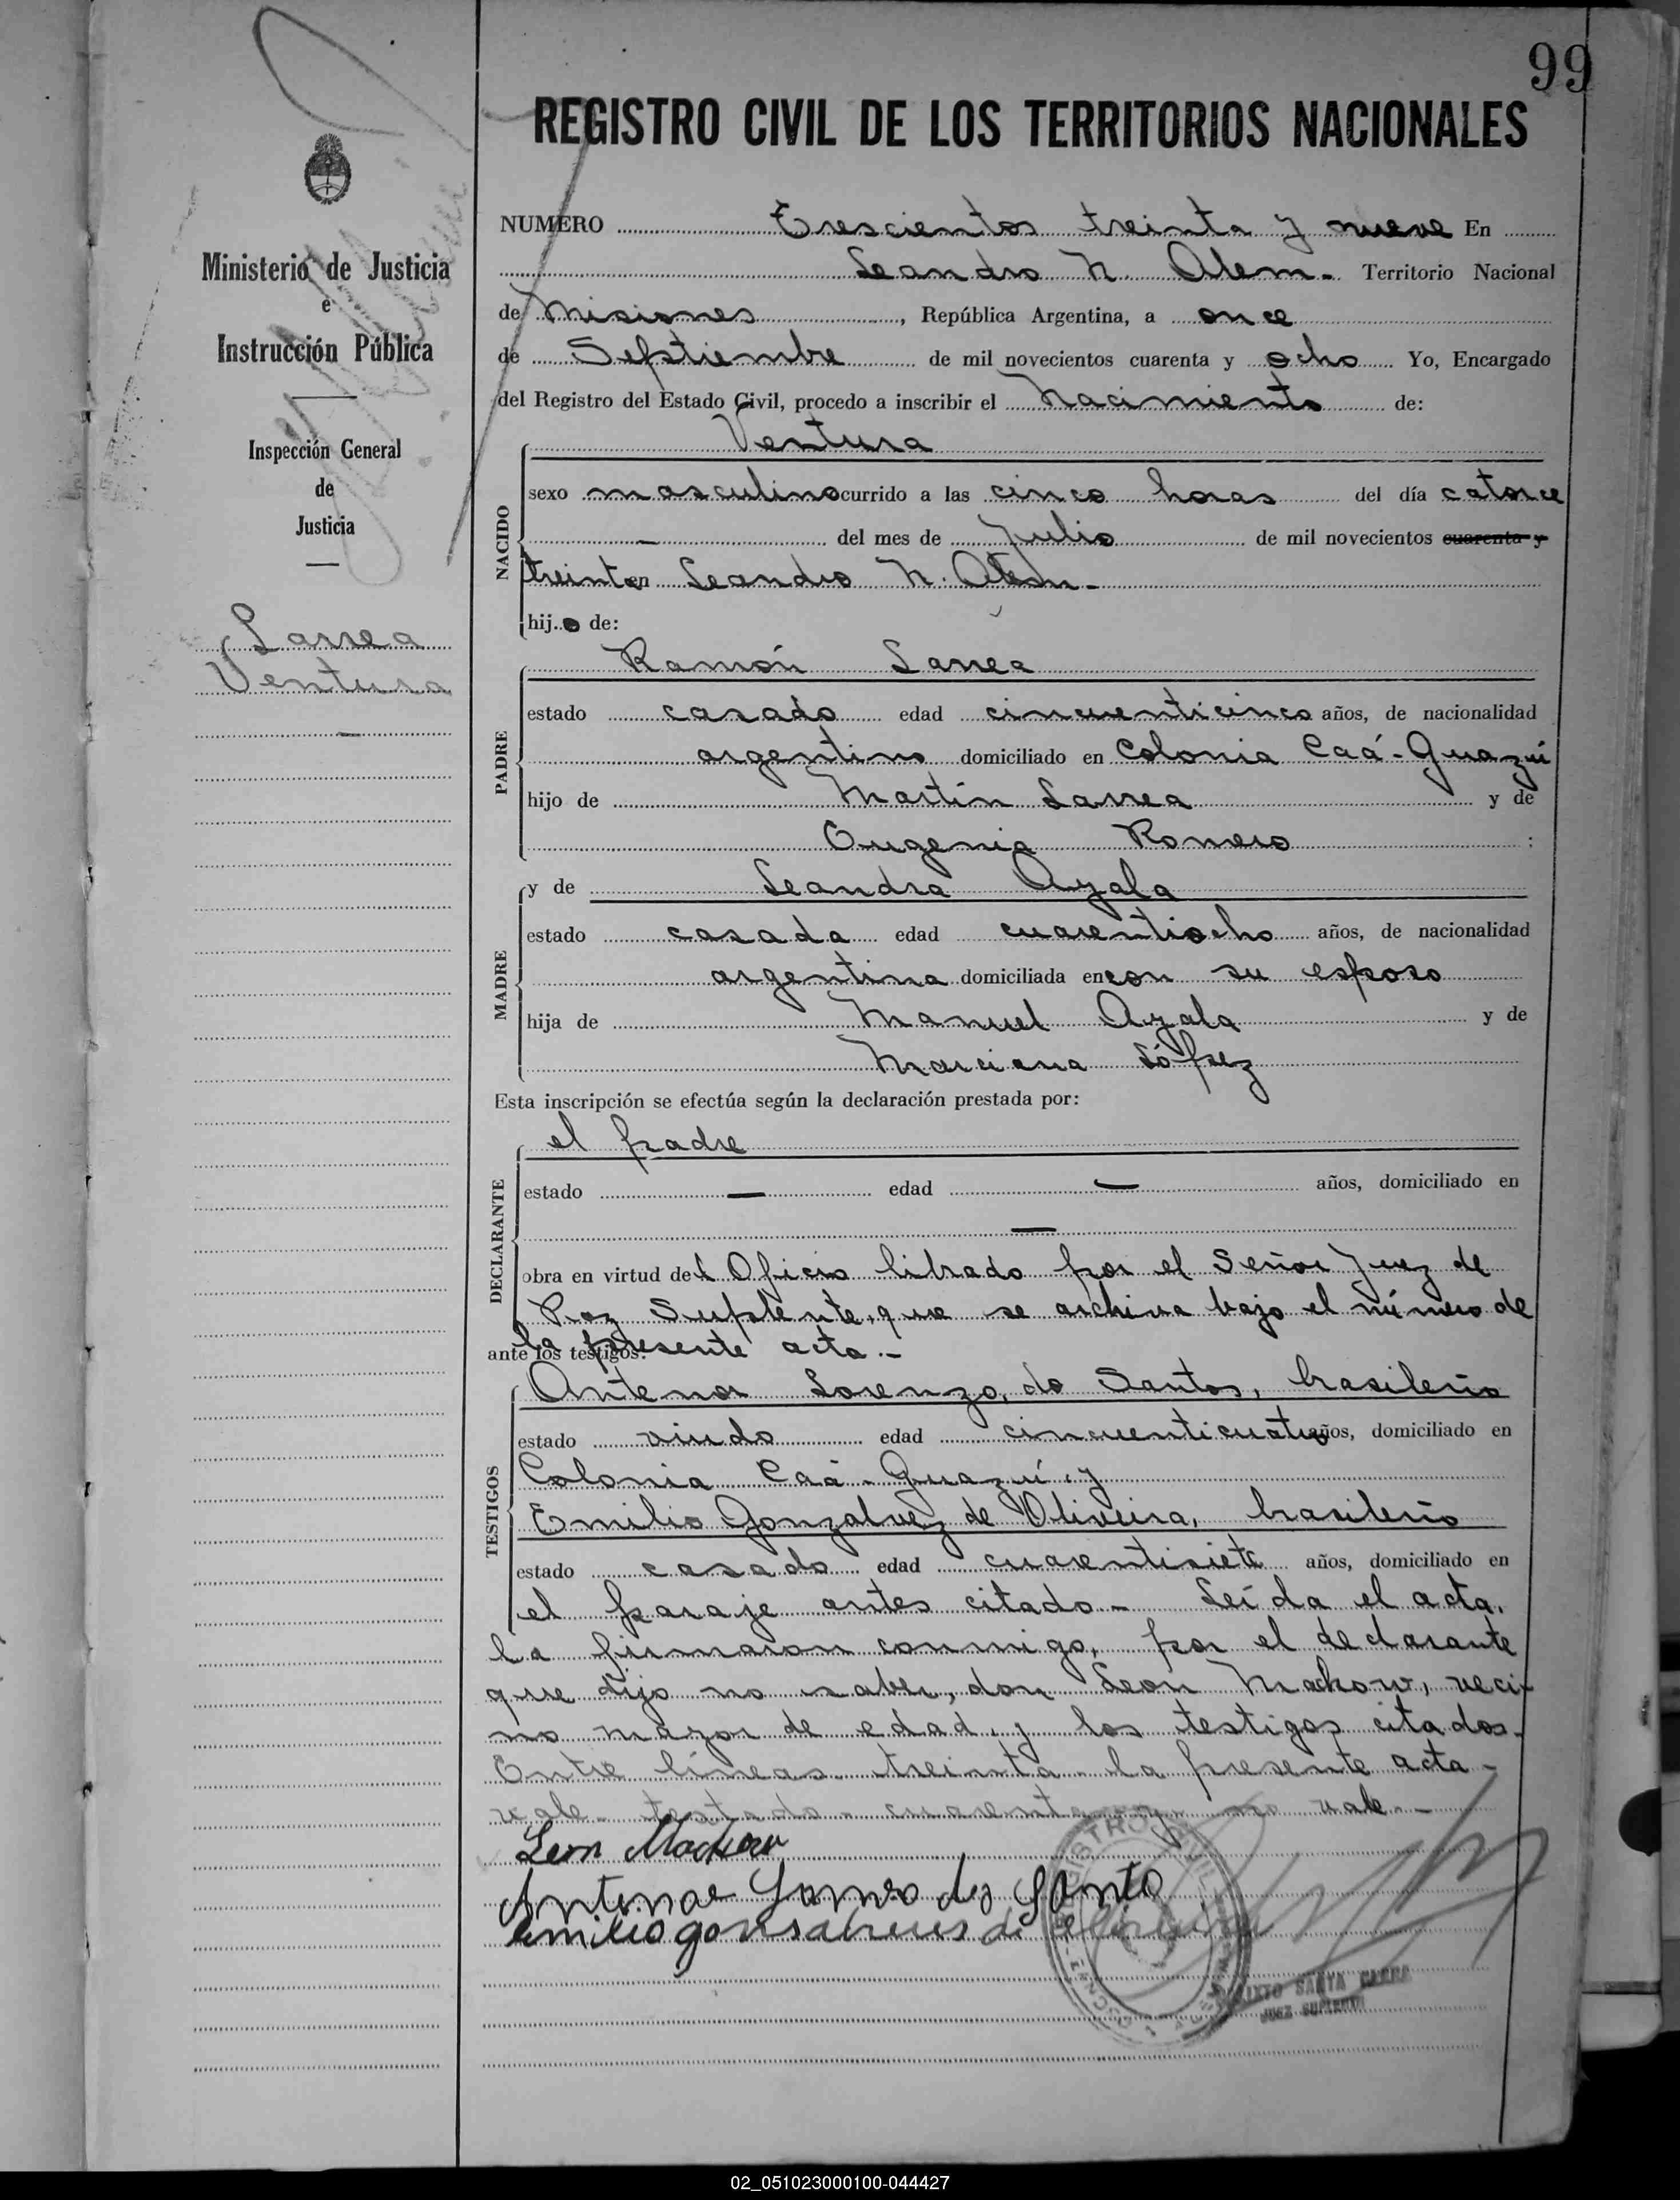 99
REGISTRO CIVIL DE LOS TERRITORIOS NACIONALES
Ministerio de Justicia
e
Instrucción Pública
Inspección General
de
Justicia
Larrea
Ventura
NUMERO Trescientos treinta y nueve En
Leandro N. Alem.- Territorio Nacional
de Misiones, República Argentina, a once
de Septiembre de mil novecientos cuarenta y ocho Yo, Encargado
del Registro del Estado Civil, procedo a inscribir el Nacimiento de:
NACIDO
Ventura
sexo masculino ocurrido a las cinco horas del día catorce
- del mes de Julio de mil novecientos cuarenta y
treinta en Leandro N. Alem.-
hijo de:
PADRE
Ramón Larrea
estado casado edad cincuenticinco años, de nacionalidad
argentino domiciliado en Colonia Caá-Guazú
hijo de Martín Larrea y de
Eugenia Romero :
MADRE
y de Leandra Ayala
estado casada edad cuarentiocho años, de nacionalidad
argentina domiciliada en con su esposo
hija de Manuel Ayala y de
Marciana López
Esta inscripción se efectúa según la declaración prestada por:
DECLARANTE
el padre
estado — edad — años, domiciliado en
—
obra en virtud del Oficio librado por el Señor Juez de
Paz Suplente, que se archiva bajo el número de
la presente acta.-
ante los testigos:
TESTIGOS
Antenor Lorenzo do Santos, brasileño
estado viudo edad cincuenticuatro años, domiciliado en
Colonia Caá-Guazú, y
Emilio Gonzalvez de Oliveira, brasileño
estado casado edad cuarentisiete años, domiciliado en
el paraje antes citado.- Leída el acta,
la firmaron conmigo, por el declarante
que dijo no saber, don Leon Mackow, veci-
no mayor de edad, y los testigos citados.
Entre líneas. treinta. la presente acta-
vale- testado- cuarenta y- no vale.-
Leon Mackow
Antenor Lorenzo do Santo
emilio gonsalvues de oliveira
REGISTRO CIVIL
SIXTO SANTA CARRA
JUEZ SUPLENTE
02_051023000100-044427